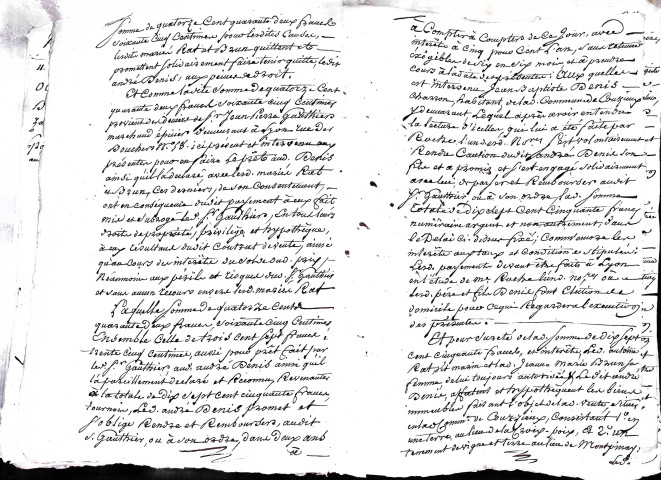 Somme de quatorze Cent quarante deux francs
Soixante Cinq Centimes pour les dites Causes,
les dits mariés Rat et Brun quittent et
promettent Solidairement faire tenir quitte led. sit
andré Denis, aux peines de Droit.
Et Comme la dite Somme de quatorze Cent
quarante deux francs Soixante Cinq Centimes
provient des deniers de Sr. Jean Pierre Gauthier
marchand épicier Demeurant à Lyon rue des
Bouchers N°. 18. ici présent et intervenu aux
présentes pour en faire le prêt aud. Denis
ainsi qu'il la déclaré, avec lesd. mariés Rat
et Brun, Ces derniers, de son Consentement,
ont en Conséquence dudit payement à eux fait
mis et Subrogé led. Sr. Gauthier, en tous leurs
droits de propriété, privilège et hypothèque,
à eux résultant dudit Contrat de vente, ainsi
qu'au Cours des intérêts du
Néanmoins aux périls et risques dud. Sr. Gauthier
et Sans aucun recours envers lesd. mariés Rat
Laquelle Somme de quatorze Cent
quarante Deux francs Soixante Cinq Centimes
Ensemble Celle de trois Cent Sept francs
trente Cinq Centimes, aussi pour prêt fait par
led. Sr. Gauthier aud. andré Denis ainsi qu'il
la pareillement déclaré et Reconnu, Revenantes
à la totale de Dix Sept Cent Cinquante francs
tournois, Led. andré Denis promet et
S'oblige Rendre et Rembourser, audit
S. Gauthier, ou à son ordre, dans deux ans
à Compter à Compter de Ce jour, avec
intérêts à Cinq pour Cent l'an, Sans retenue
éxigibles de Six en Six mois et à prendre
Cours à la date des présentes: Aux quelles
est Intervenu Jean Baptiste Denis
habitant de la Commune de Couzieux
y demeurant Lequel après avoir entendu
la lecture d'icelles que lui a été faite par
Roche l'un desd. Nores. S'est volontairement
Rendu Caution dudit andré Denis son
fils et a promis et S'est engagé Solidairement
avec lui de payer et Rembourser audit
Sr. Gauthier ou à son ordre lad. Somme
totale de dix Sept Cent Cinquante francs
numéraire argent et non autrement, dans
le Délai Ci-dessus fixé, Comme aussi les
intérêts aux taux et Condition Stipulés
Lesd. payements devant être faits à Lyon
en l'étude de me. Roche l'un desd. nores. où
lesd. père et fils Denis font Election de
domicile pour Ce qui Regarde l'exécution
des présentes.
Et pour Sureté de lad. Somme de Dix Sept
Cent Cinquante francs, et intérêts, Led. antoine
Rat dit marin et lad. Jeanne Marie Brun sa
femme, de lui toujours autorisée & Led. dit andré
Denis, affectent et hypothèquent les biens
immeubles faisant l'objet de lad. vente, situés
en lad. Comme. de Couzieux, Consistant 1°. en
une terre, au lieu de la Croix-paix, et 2°. en un
tènement de vigne et terre au lieu de Montpinay,